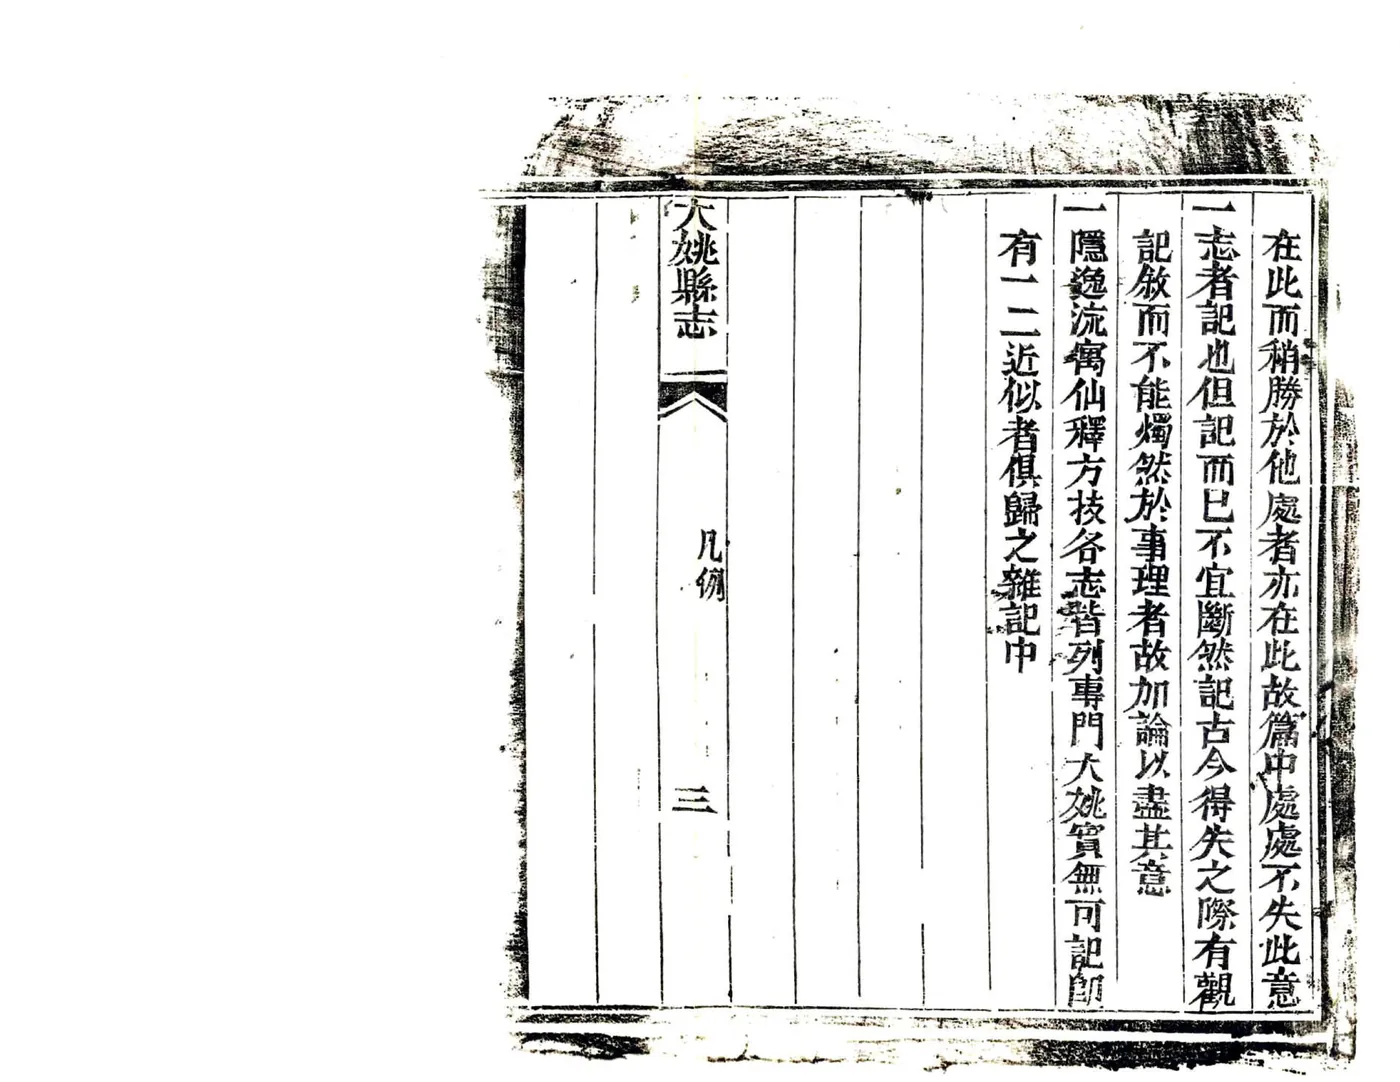 在此而稍勝於他處者亦在此故篇中處處不失此意
一志者記也但記而已不宜斷然記古今得失之際有觀
記敘而不能燭然於事理者故加論以盡其意
一隱逸流寓仙釋方技各志皆列專門大姚實無可記即
有一二近似者俱歸之雜記中
大姚縣志
凡例
三